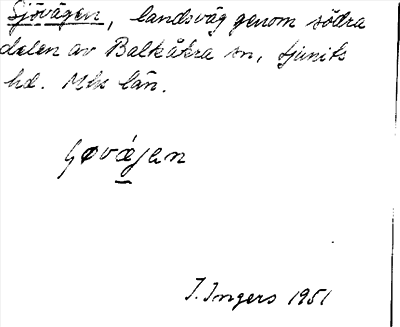 Sjövägen, landsväg genom södra
delen av Balkåkra sn, Ljunits
hd. Mhs län.
ʃøvǽgen
I. Ingers 1951